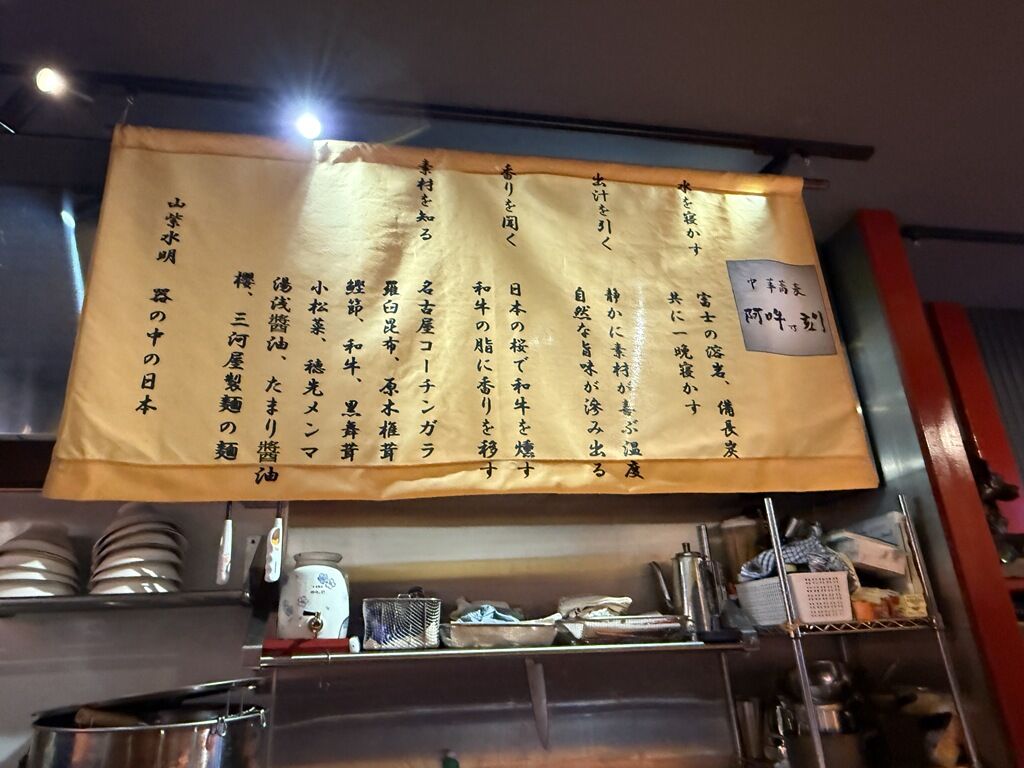 中華蕎麦
阿吽
水を寝かす
富士の溶岩、備長炭
共に一晩寝かす
出汁を引く
静かに素材が喜ぶ温度
自然な旨味が滲み出る
香りを聞く
日本の桜で和牛を燻す
和牛の脂に香りを移す
素材を知る
名古屋コーチンガラ
羅臼昆布、原木椎茸
鰹節、和牛、黒舞茸
小松菜、穂先メンマ
湯浅醬油、たまり醬油
櫻、三河屋製麺の麺
山紫水明　器の中の日本